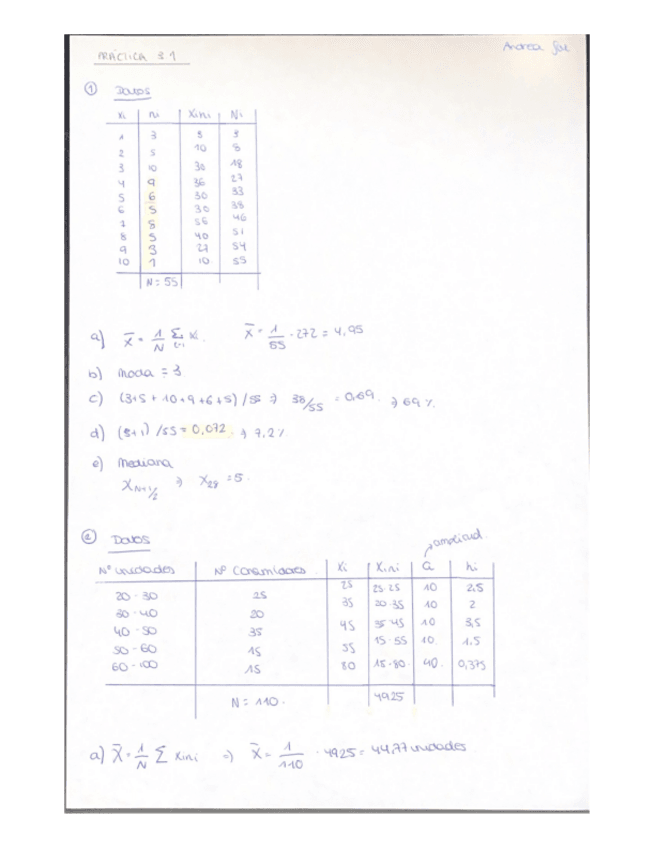 Andrea
PRÁCTICA 3.1
① Datos
xi ni xini Ni
1 3 3 3
2 5 10 8
3 10 30 18
4 9 36 27
5 6 30 33
6 5 30 38
7 8 56 46
8 5 40 51
9 3 27 54
10 1 10 55
N = 55
a) x̄ = 1/N Σ i=1 xi. x̄ = 1/55 · 272 = 4,95
b) moda = 3
c) (3+5+10+9+6+5)/55 ⇒ 38/55 = 0,69. ⇒ 69%.
d) (3+1)/55 = 0,072. ⇒ 7,2%
e) Mediana
X N+1/2 ⇒ X28 = 5.
② Datos
amplitud.
Nº unidades Nº Consumidores xi xini a hi
20-30 25 25 25·25 10 2,5
30-40 20 35 20·35 10 2
40-50 35 45 35·45 10 3,5
50-60 15 55 15·55 10. 1,5
60-100 15 80 15·80. 40. 0,375
N = 110. 4925
a) X̄ = 1/N Σ xini ⇒ X̄ = 1/110 · 4925 = 44,77 unidades